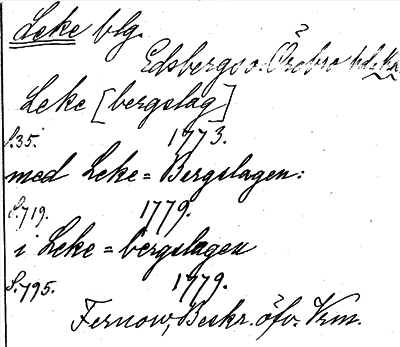 Leke blg.
?
Edsbergs o. Örebro hd
Leke [bergslag]
S. 35. 1773.
med Leke = Bergslagen:
S. 719. 1779.
i Leke = bergslagen
S. 795. 1779.
Fernow, Beskr. öfv. Vrm.